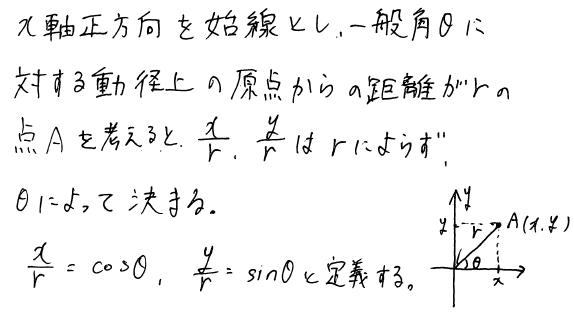 x軸正方向を始線とし、一般角θに
対する動径上の原点からの距離がrの
点Aを考えると、x/r、y/rはrによらず、
θによって決まる。
x/r = cosθ, y/r = sinθと定義する。
y
y
r
A(x,y)
θ
x